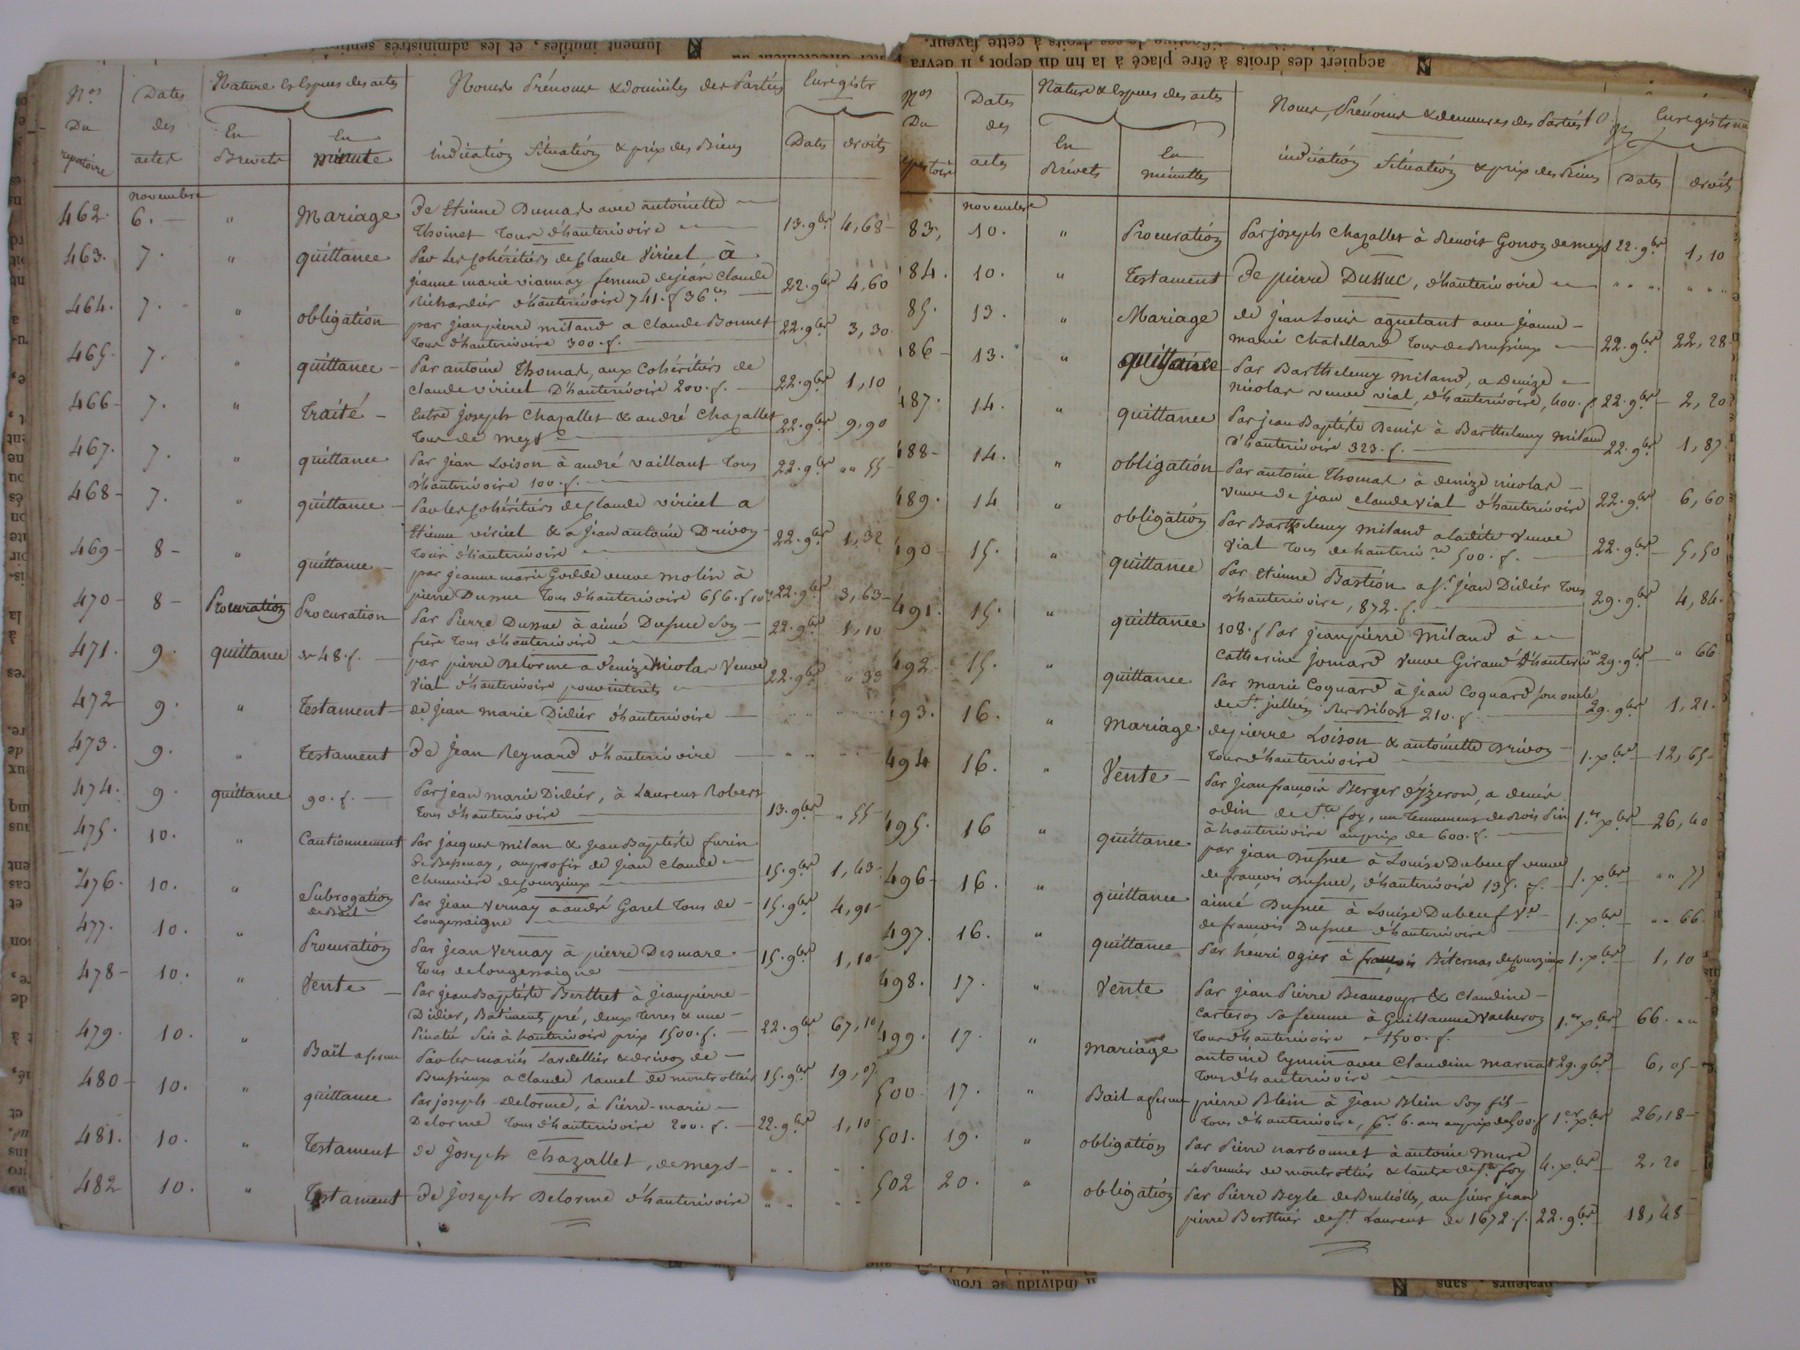 Nos
Du
repertoire
Dates
des
actes
Nature & Especes des actes
En
Brevets
En
minute
Noms Prénoms & domiciles des Parties
indication Situation & prix des Biens
Enregistr
Dates
droits
novembre
462. 6. " Mariage De Etienne Dumas avec antoinette
Thoinet Tous d'hauterivoire 13. 9bre 4,68
463. 7. " quittance Par Les Cohéritiers de Claude Viricel à
jeanne marie viannay femme de jean Claude
Richardier d'hauterivoire 741. f 36 cs 22. 9bre 4,60
464. 7. " obligation par jean pierre miland a Claude Bonnet
Tous d'hauterivoire 300. f. 22. 9bre 3,30
465. 7. " quittance Par antoine Thomas, aux Cohéritiers de
Claude viricel D'hauterivoire 200. f. 22. 9bre 1,10
466 7. " Traité Entre joseph Chazallet & andré Chazallet
Tous de meys 22. 9bre 9,90
467. 7. " quittance Par jean Loison à andré vaillant Tous
D'hauterivoire 100. f. 22. 9bre " 55
468 7. " quittance Par les Cohéritiers de Claude viricel a
Etienne viricel & a jean antoine Drivon
Tous d'hauterivoire 22. 9bre 1,32
469 8 " quittance par jeanne marie veuve molin à
pierre Dussuc Tous d'hauterivoire 656. f 22. 9bre 3,63
470 8 Procuration Procuration Par Pierre Dussuc à aimé Dussuc Son
frère Tous d'hauterivoire 22. 9bre 1,10
471. 9. quittance de 48. f. par pierre Delorme a Denize Nicolas Veuve
Vial d'hauterivoire pour interets 22. 9bre " 33
472 9. " Testament de jean marie Didier d'hauterivoire
473. 9. " Testament De jean Reynard d'hauterivoire
474. 9. quittance 90. f. Par jean marie Didier, à Laurent Robert
Tous d'hauterivoire 13. 9bre " 55
475. 10. " Cautionnement Par jacques milan & jean Baptiste furin
de Bessenay, au profit de jean Claude
Chenevière de Courzieux 15. 9bre 1,63
476. 10. " Subrogation
de Bail Par jean Vernay a andré Garel Tous de
Longessaigne 15. 9bre 4,91
477. 10. " Procuration Par jean Vernay à pierre Desmare
Tous de Longessaigne 15. 9bre 1,10
478 10. " Vente Par jean Baptiste Berthet à jean pierre
Didier, Batiments, pré, deux Terres & une
Pinatée Sis à hauterivoire prix 1500. f. 22. 9bre 67,10
479. 10. " Bail a ferme Par les mariés Lardellier & drivon de
Brussieux a Claude Ramel de montrottier 15. 9bre 19,07
480 10. " quittance Par joseph Delorme, à Pierre-marie
Delorme Tous d'hauterivoire 200. f. 22. 9bre 1,10
481. 10. " Testament de joseph Chazallet, de meys
482 10. " Testament de joseph Delorme d'hauterivoire
Nos
Du
Dates
des
actes
Nature & Especes des actes
En
Brévets
En
minuttes
Noms, Prénoms & demeures des Parties
indication Situation & prix des Biens
Dates
droits
novembre
83, 10. " Procuration Par joseph Chazallet à Benoit Gonon de meys 22. 9bre 1,10
84. 10. " Testament De pierre Dussuc, d'hauterivoire
85. 13. " Mariage de jean Louis aguetant avec jeanne
marie Chatillard Tous de Brussieux 22. 9bre 22,28
186 13. " quittance Par Barthelemy Miland, a Denize
nicolas veuve vial, d'hauterivoire, 400. f. 22. 9bre 2,20
487. 14. " quittance Par jean Baptiste Denis à Barthelemy Miland
d'hauterivoire 323. f. 22. 9bre 1,87
488 14. " obligation Par antoine Thomas à denize nicolas
Veuve de jean Claude Vial d'hauterivoire 22. 9bre 6,60
489. 14 " obligation Par Barthelemy Miland a ladite Veuve
Vial Tous de hauterivre 500. f. 22. 9bre 5,50
490 15. " quittance Par Etienne Bastion a Sr jean Didier Tous
d'hauterivoire, 872. f. 29. 9bre 4,84
491. 15. " quittance 108. f Par jean pierre Miland à
Catherine jomard Veuve Giraud d'hauterivre 29. 9bre " 66
492 15. " quittance Par Marie Coquard à jean Coquard son oncle
de St jullien Sur Bibost 210. f. 29. 9bre 1,21.
493. 16. " Mariage de pierre Loison & antoinette Drivon
Tous d'hauterivoire 1. xbre 12,65
494 16. " Vente Par jean francois Berger d'yzeron, a denis
odin de Ste foy, un Tennement de Bois Pin
à hauterivoire au prix de 600. f. 1.er xbre 26,40
495. 16 " quittance par jean Dussuc à Louise Dubeuf veuve
de francois Dussuc, d'hauterivoire 135. f. 1. xbre " 77
496 16. " quittance aimé Dussuc à Louise Dubeuf Ve
de francois Dussuc d'hauterivoire 1. xbre " 66
497. 16. " quittance Par henri ogier à françois Biternas de Courzieux 1. xbre 1,10
498. 17. " Vente Par jean Pierre Beaucoup & Claudine
Carteron Sa femme à Guillaume Vacheron
Tous d'hauterivoire 1500. f. 1.er xbre 66. "
499. 17. " Mariage antoine Eymin avec Claudine Marnat
Tous d'hauterivoire 29. 9bre 6,05
500 17. " Bail a ferme pierre Blein à jean Blein Son fils
Tous d'hauterivoire, pr 6. ans au prix de 500. f 1.er xbre 26,18
501. 19. " obligation Par Pierre narbonnet à antoine Mure
Le Premier de montrottier & l'autre de Ste foy 4. xbre 2,20
502 20. " obligation Par Pierre Beyle de Brulliolles, au Sieur jean
pierre Berthier de St Laurent de 1672. f. 22. 9bre 18,48